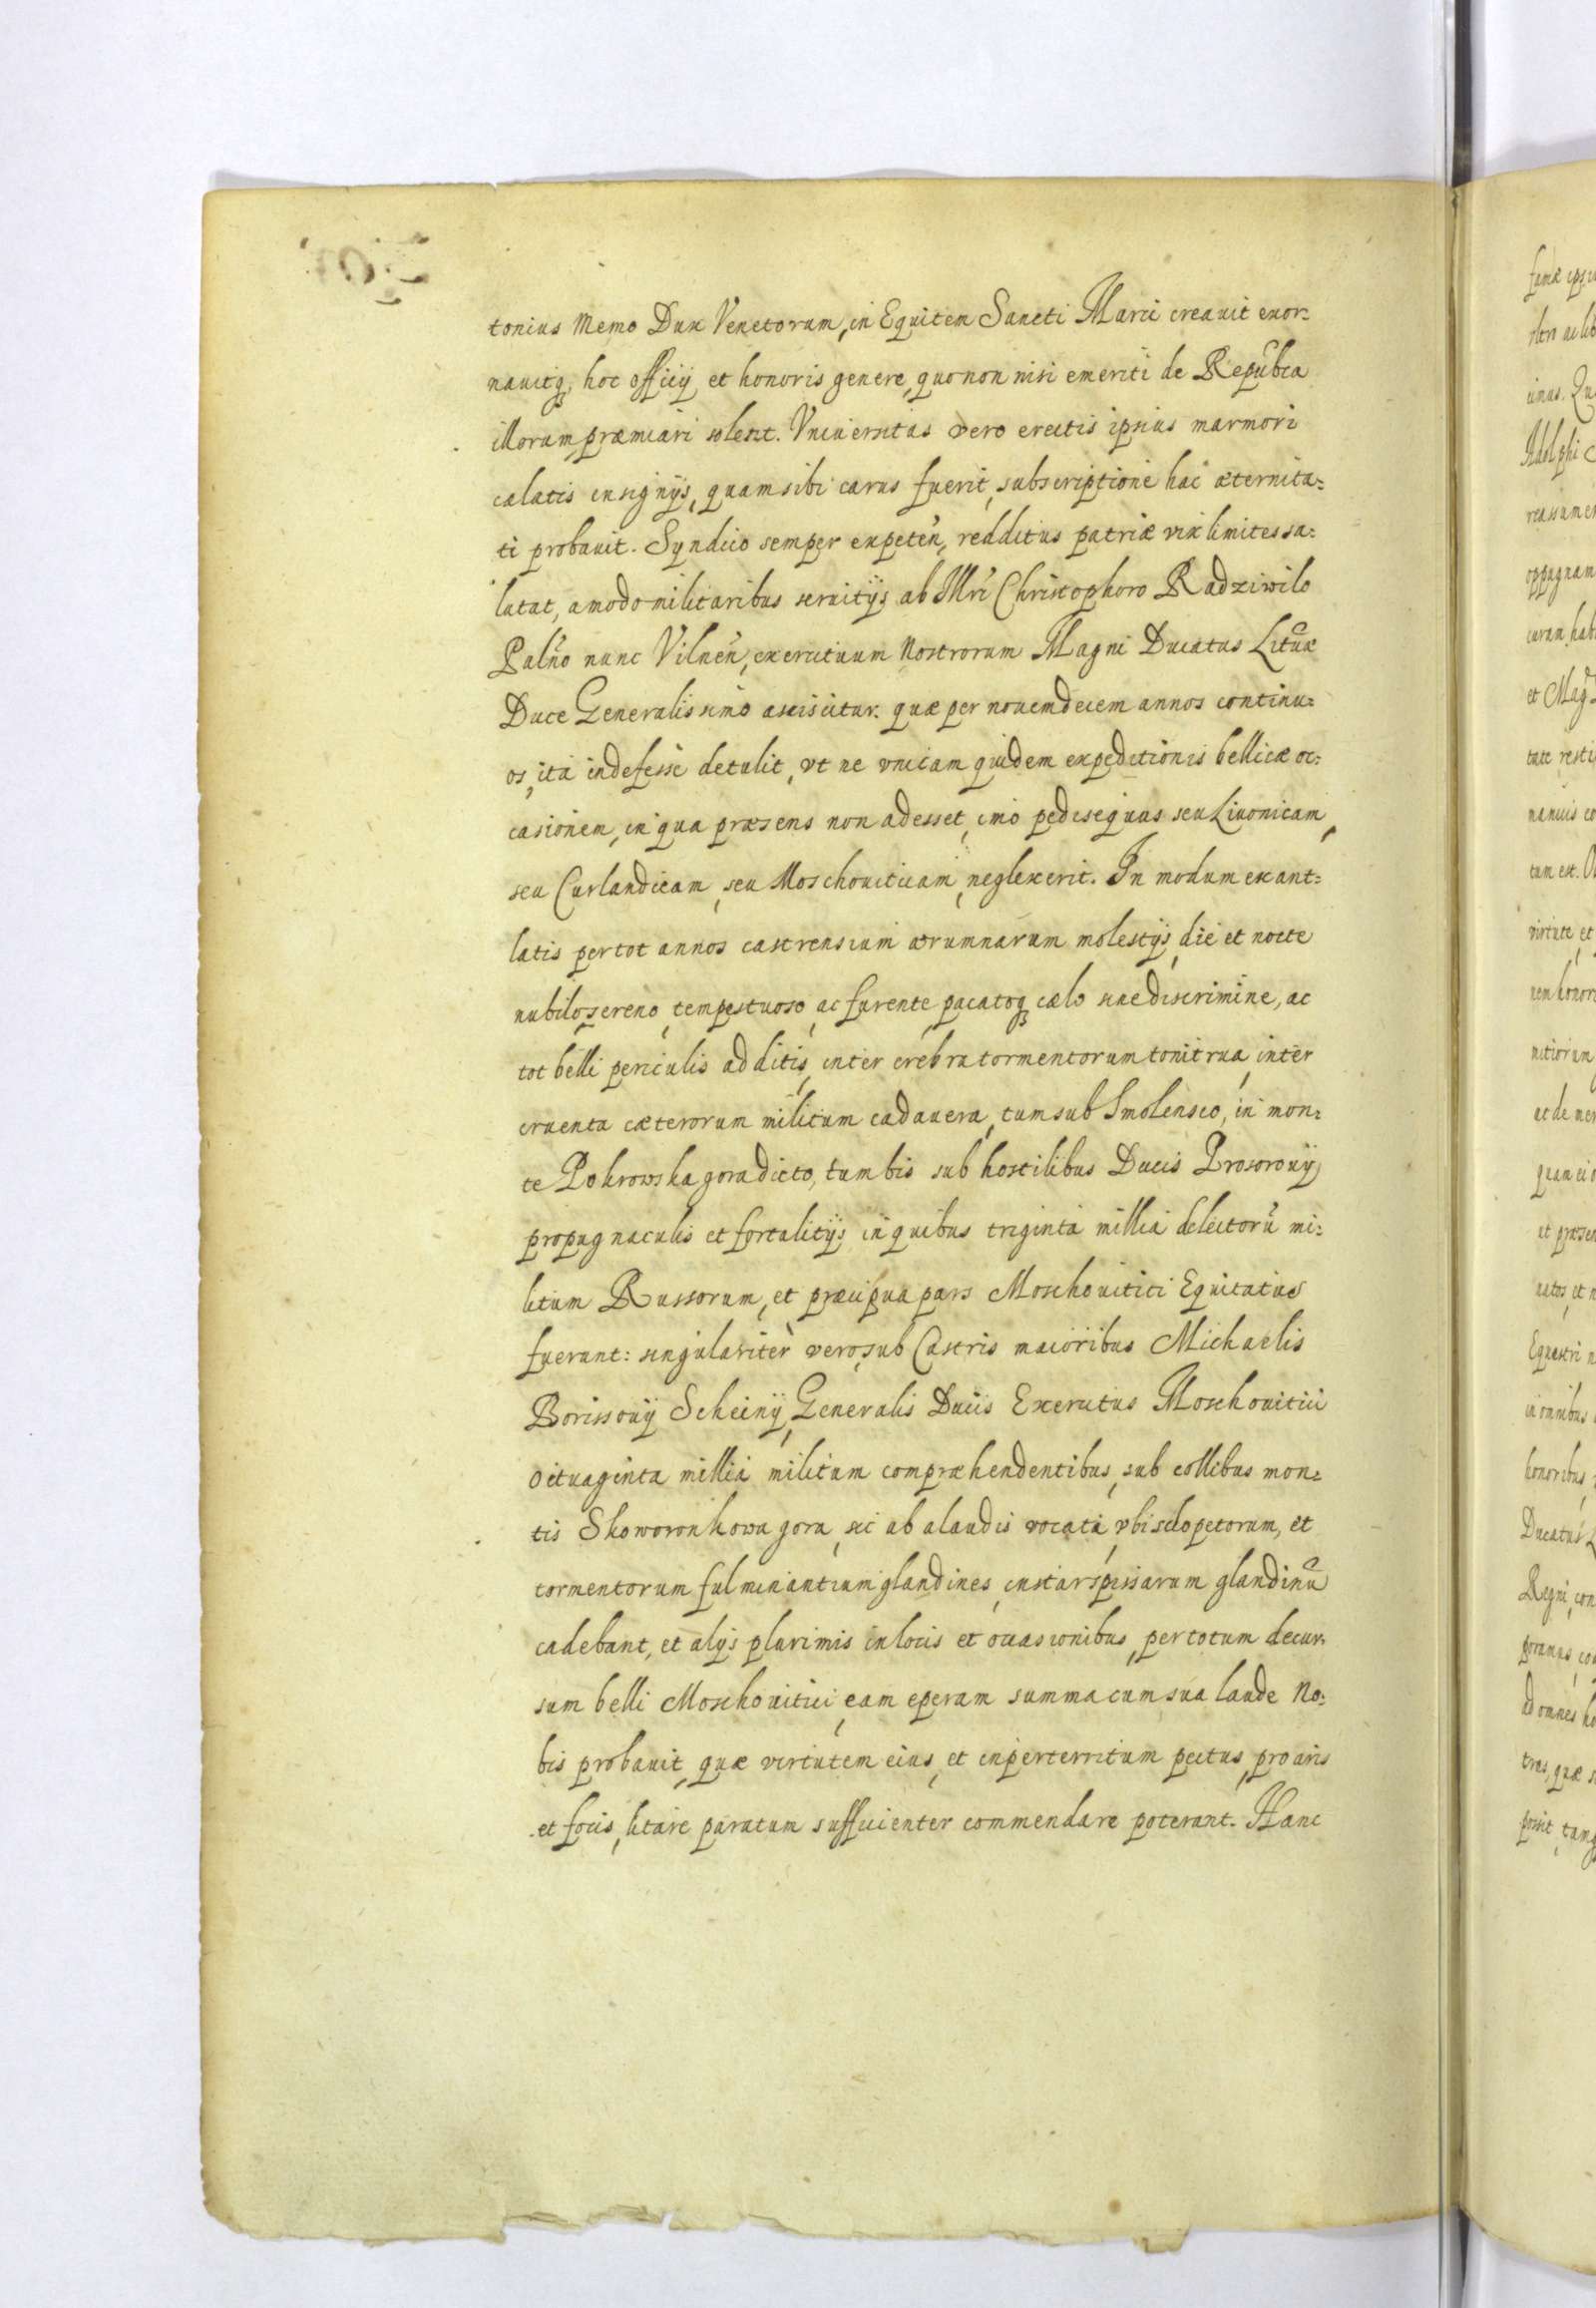 tonius Memo Dux Venetorum, in Equitem Sancti Marci creauit exor=
nauitq, hoc officij et honoris genere, quo non nisi emeriti de Repubca
illorum, præmiari solent. Vniuersitas vero erectis ipsius marmori
cælatis insignijs, quam sibi carus fuerit, subscriptione hac æternita=
ti probauit. Syndico semper expeteñ, redditus patriæ vix limites sa=
lutat, a modo militaribus seruitijs ab Illri Christophoro Radziwilo
Palno nunc Vilneñ, exercituum Nostrorum Magni Ducatus Lituæ
Duce Generalissimo asciscitur. quæ per nouemdecem annos continu=
os, ita indefessè detulit, vt ne vnicam quidem expeditionis bellicæ oc=
casionem, in qua præsens non adesset, imò pedisequus seu Liuonicam,
seu Curlandicam, seu Moschouiticam, neglexerit. In modum exant=
latis per tot annos castrensium ærumnarum molestijs, die et nocte
nubilo, sereno, tempestuoso, ac furente, pacatoq cælo sine discrimine, ac
tot belli periculis additis, inter crebra tormentorum tonitrua, inter
cruenta cæterorum militum cadauera, tum sub Smolensco, in mon=
te Pokrowska gora dicto, tum bis sub hostilibus Ducis Prosorouij
propugnaculis et fortalitijs, in quibus triginta millia delectorũ mi=
litum Russorum, et præcipua pars Moschouitici Equitatus
fuerunt: singulariter verò, sub Castris maioribus Michaelis
Borissouij Scheinij, Generalis Ducis Exercitus Moschouitici
octuaginta millia militum compræhendentibus, sub collibus mon=
tis Skowronkowa gora, sic ab alaudis vocata, vbi sclopetorum, et
tormentorum fulminantium glandines, instar spissarum glandinũ
cadebant, et alijs plurimis in locis et occasionibus, per totum decur=
sum belli Moschouitici, eam operam summa cum sua laude No=
bis probauit, quæ virtutem eius, et inperterritum pectus, pro aris
et focis, litare paratum sufficienter commendare poterant. Hanc